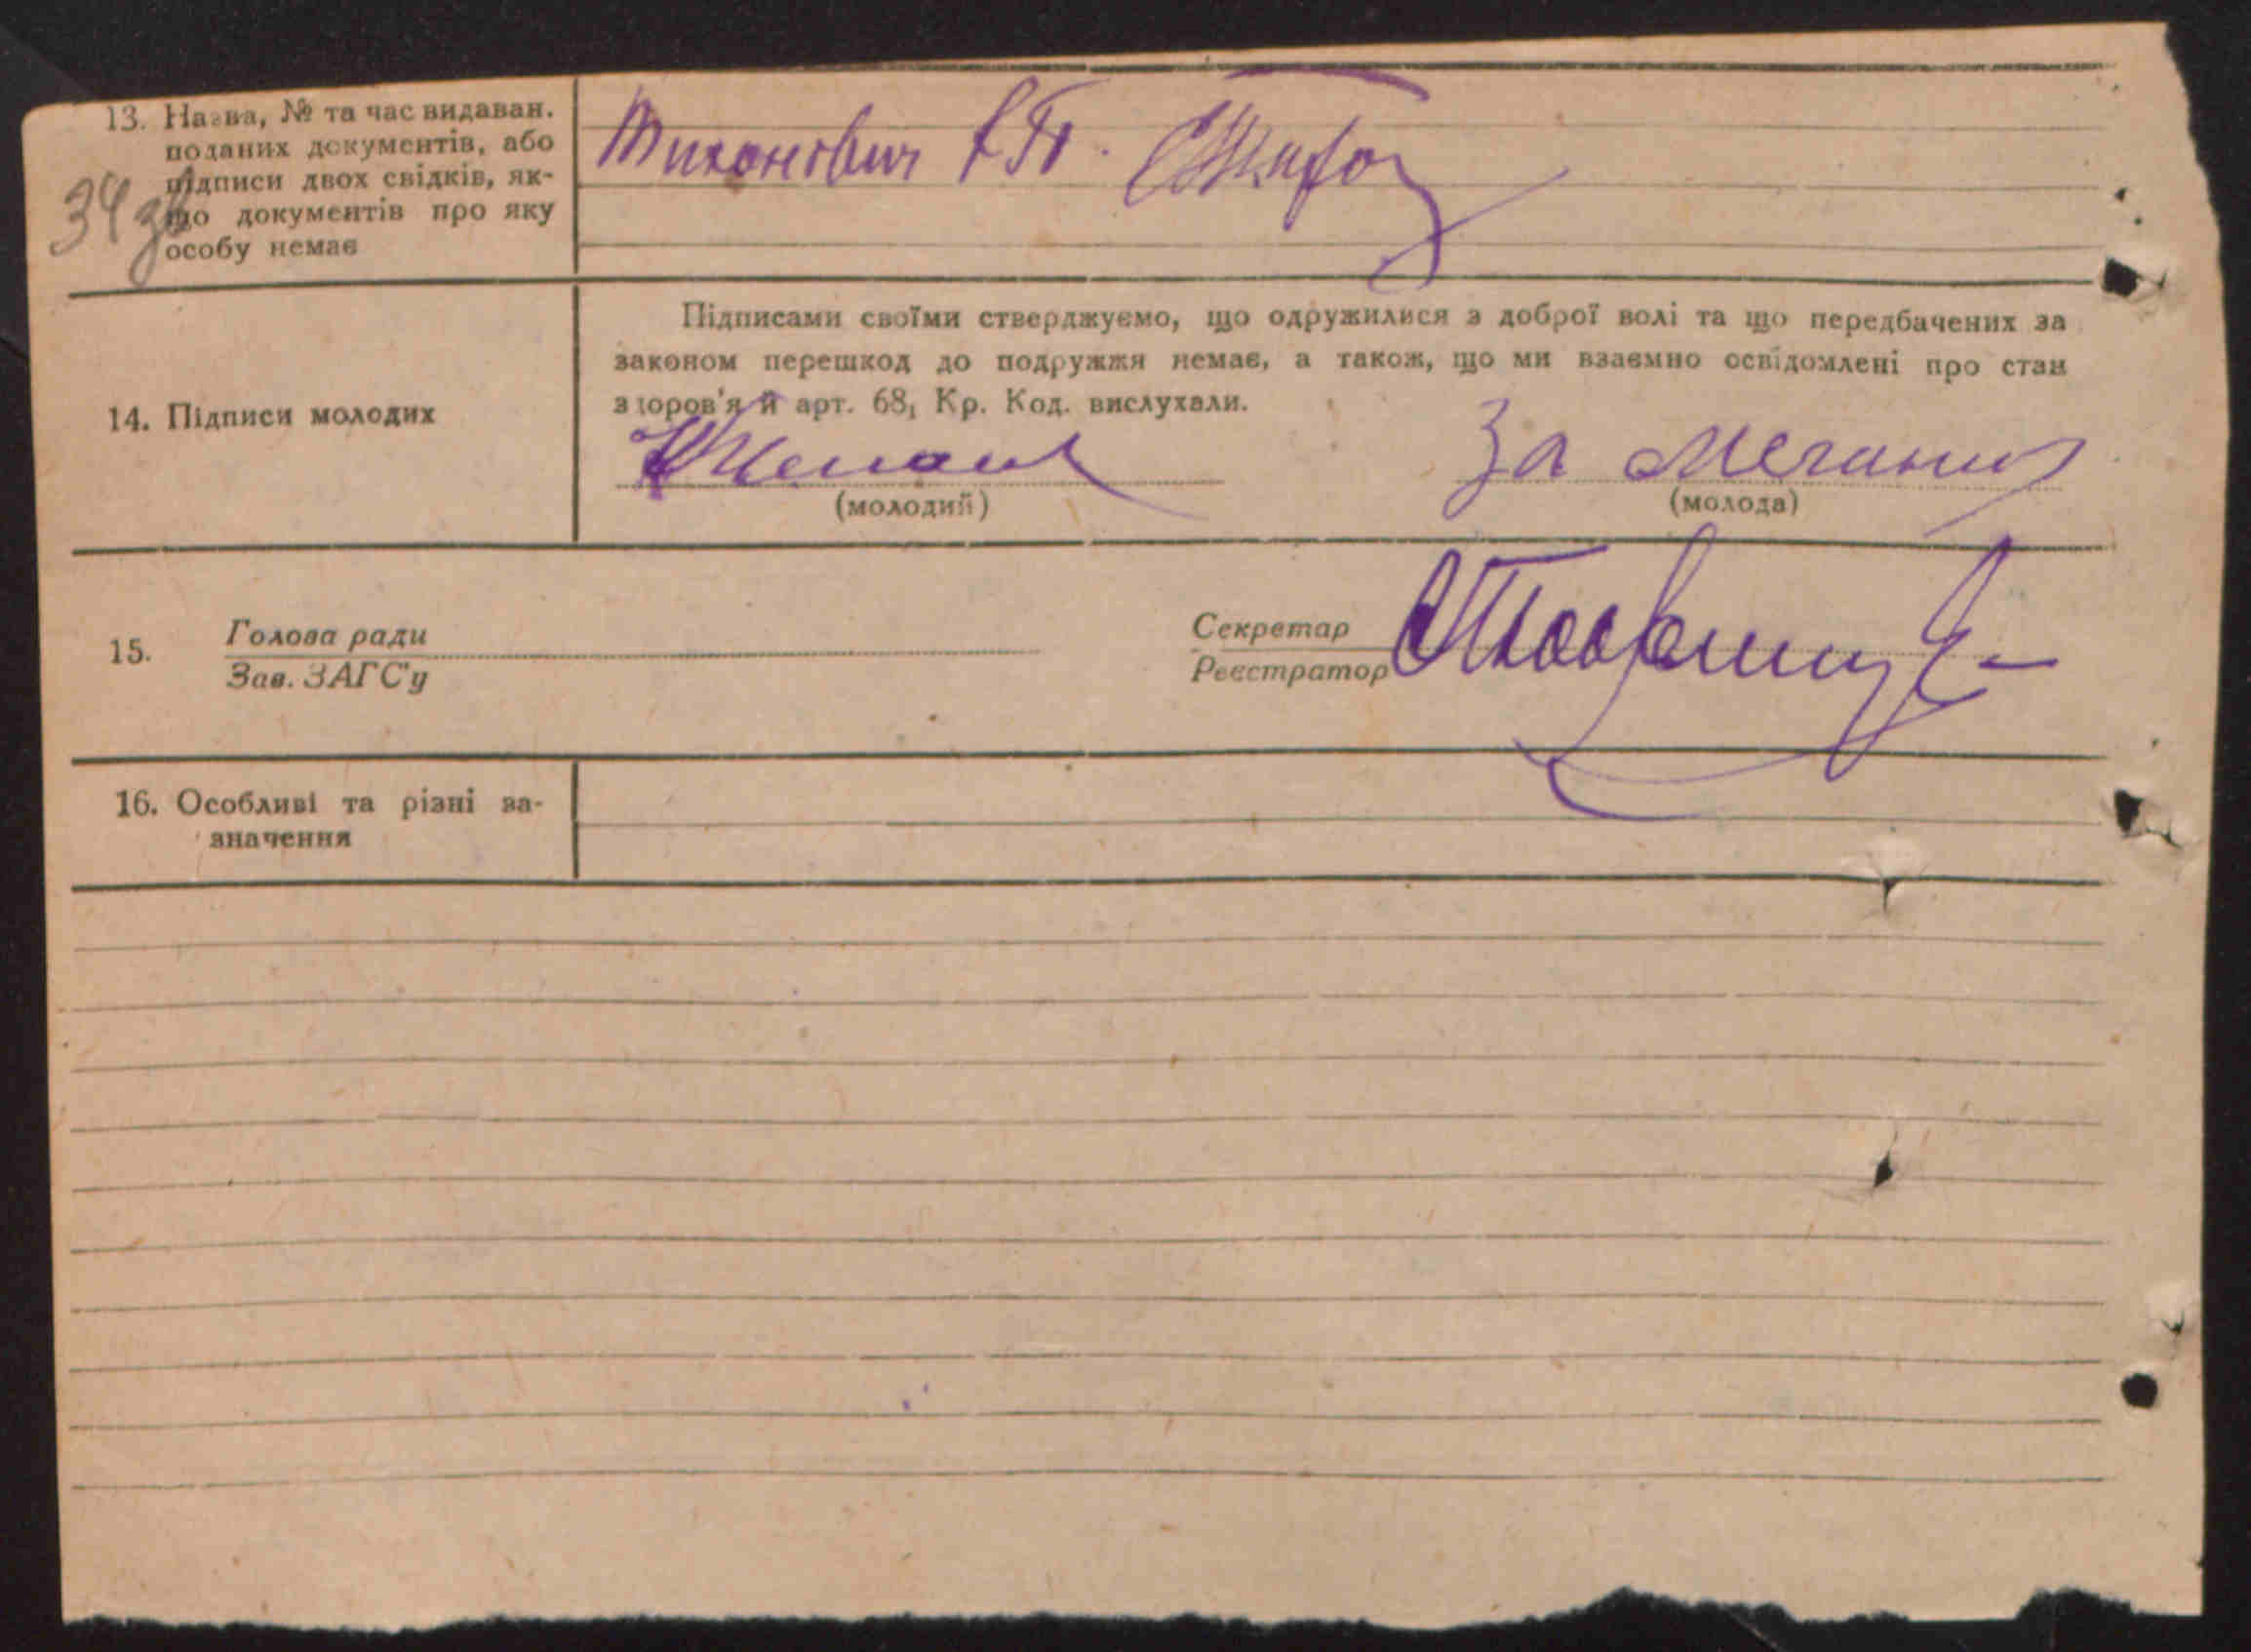 13. Назва, № та час видаван.
поданих документів, або
підписи двох свідків, як-
що документів про яку
особу немає
34 зв
Тихонович
14. Підписи молодих
Підписами своїми стверджуємо, що одружилися з доброї волі та що передбачених за
законом перешкод до подружжя немає, а також, що ми взаємно освідомлені про стан
здоров'я й арт. 68, Кр. Код. вислухали.
За
(молодий)
(молода)
15.
Голова ради
Зав. ЗАГС'у
Секретар
Реєстратор
16. Особливі та різні за-
значення